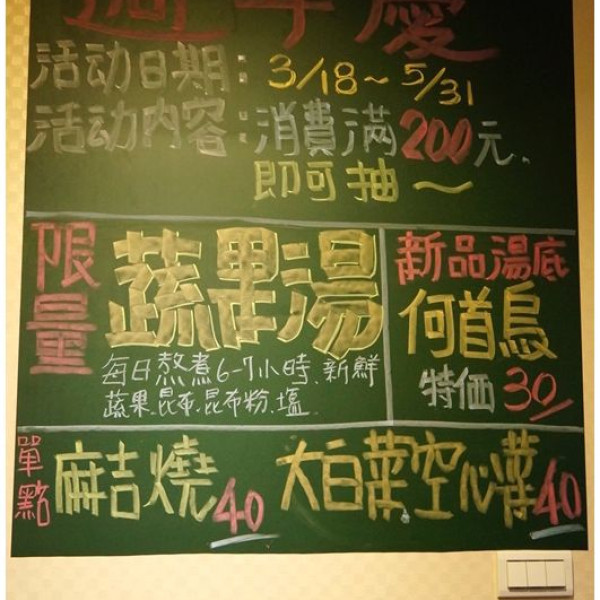 週年慶
活动日期：3/18～5/31
活动内容：消費滿200元、
即可抽～
限量
蔬果湯
每日熬煮6-7小時、新鮮
蔬果、昆布、昆布粉、塩
新品湯底
何首烏
特価 30/
單點
麻吉燒40
大白菜空心菜40